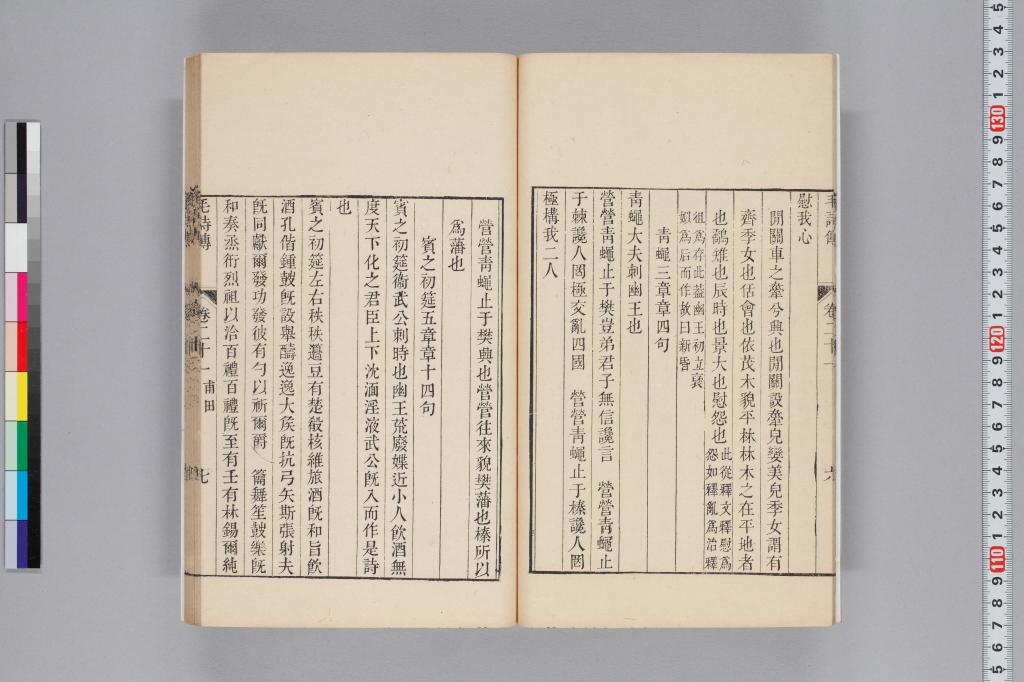 慰我心
閒關車之舝兮興也閒關設舝皃孌美皃季女謂有
齊季女也佸會也依茂木貌平林林木之在平地者
也鷮雉也辰時也景大也慰怨也此從釋文釋慰爲
怨如釋亂爲治釋
徂爲存此葢幽王初立襃
姒爲后而作故曰新昏
青蠅三章章四句
青蠅大夫刺幽王也
營營青蠅止于樊豈弟君子無信讒言　營營青蠅止
于棘讒人罔極交亂四國　營營青蠅止于榛讒人罔
極構我二人
營營青蠅止于樊興也營營往來貌樊藩也榛所以
爲藩也
賓之初筵五章章十四句
賓之初筵衞武公刺時也幽王荒廢媟近小人飮酒無
度天下化之君臣上下沈湎淫液武公旣入而作是詩
也
賓之初筵左右秩秩籩豆有楚殽核維旅酒旣和旨飮
酒孔偕鍾鼓旣設舉醻逸逸大矦旣抗弓矢斯張射夫
旣同獻爾發功發彼有勺以祈爾爵　籥舞笙鼓樂旣
和奏烝衎烈祖以洽百禮百禮旣至有壬有林錫爾純
毛詩傳　卷二十一　甫田　七